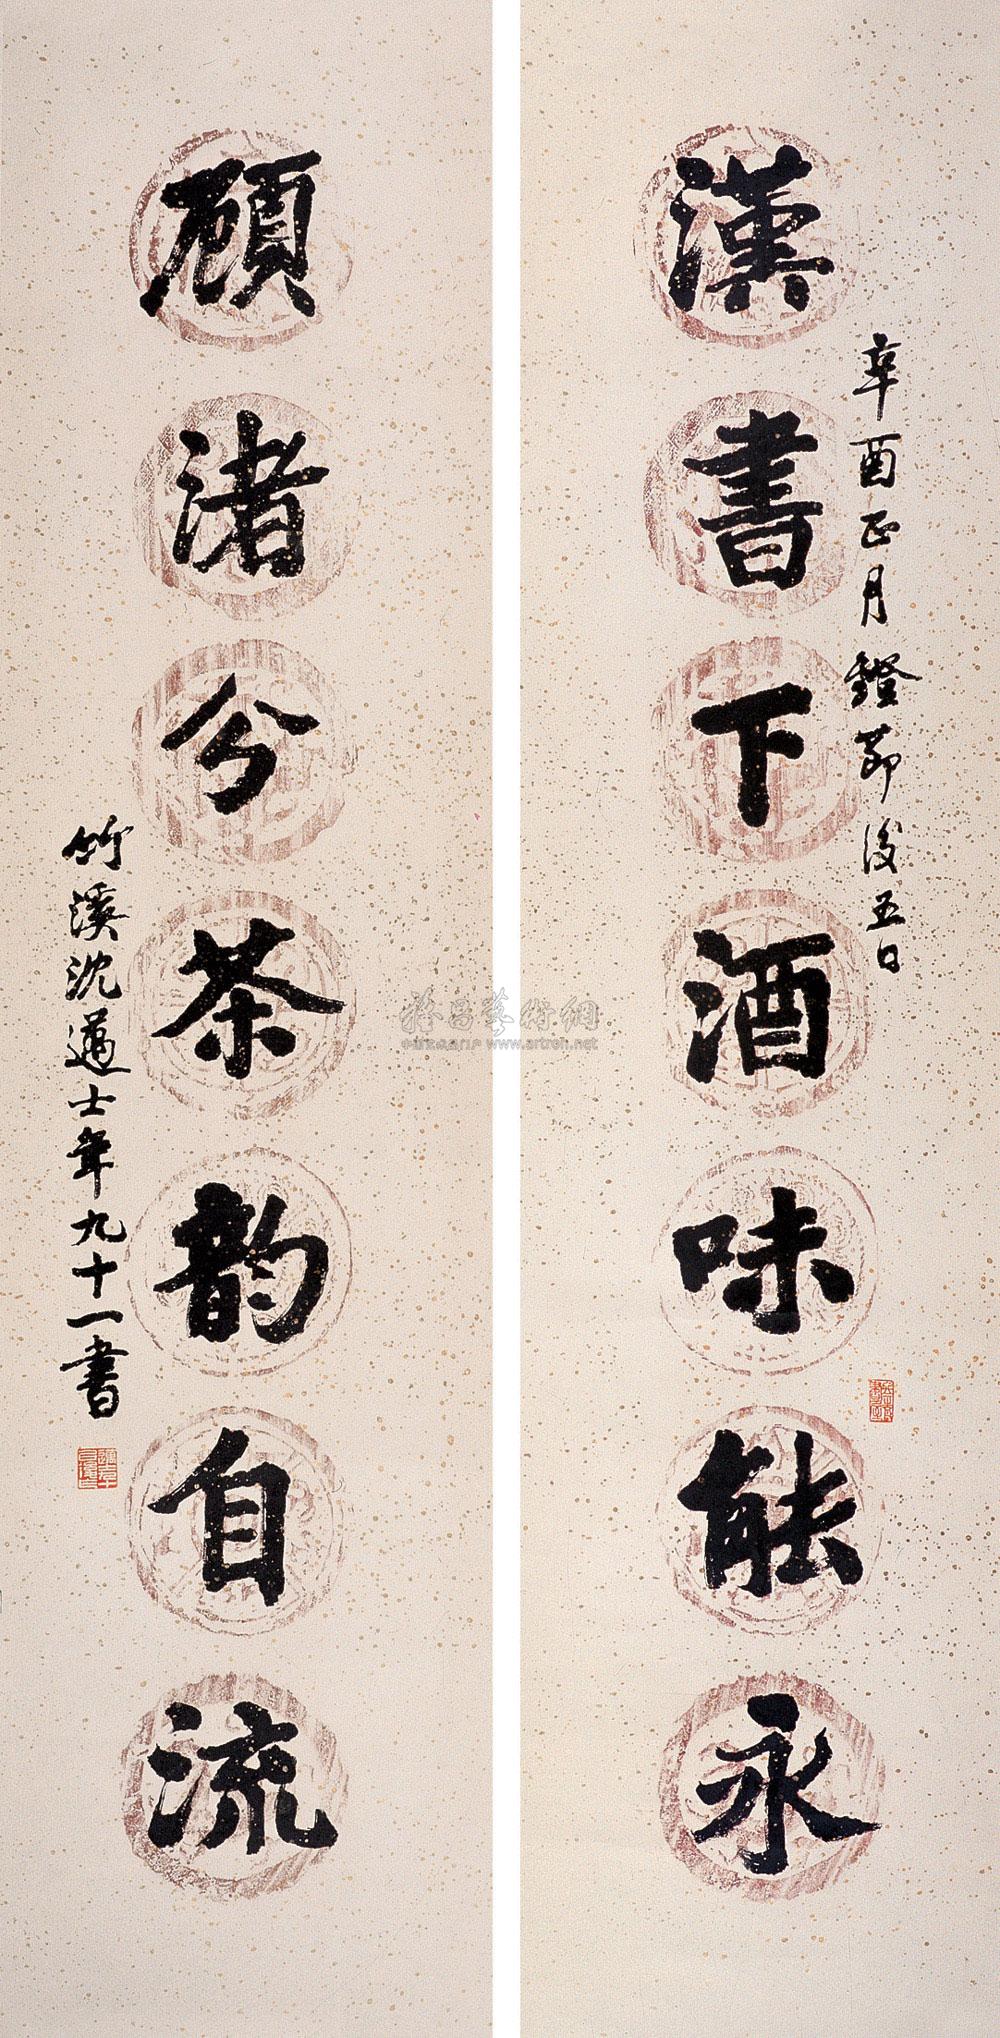 漢書下酒味能永
辛酉正月鐙節後五日
顧渚分茶韵自流
竹溪沈邁士年九十一書
www.artron.net